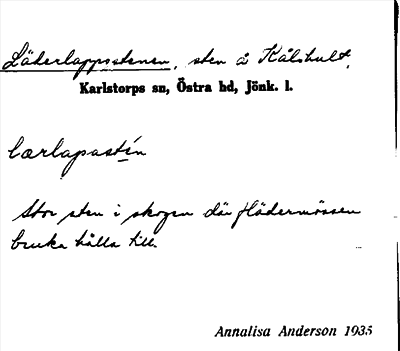 Läderlappsstenen, sten å Kålshult,
Karlstorps sn, Östra hd, Jönk. l.
lærlapastín
Stor sten i skogen där flädermössen
bruka hålla till.
Annalisa Anderson 1935